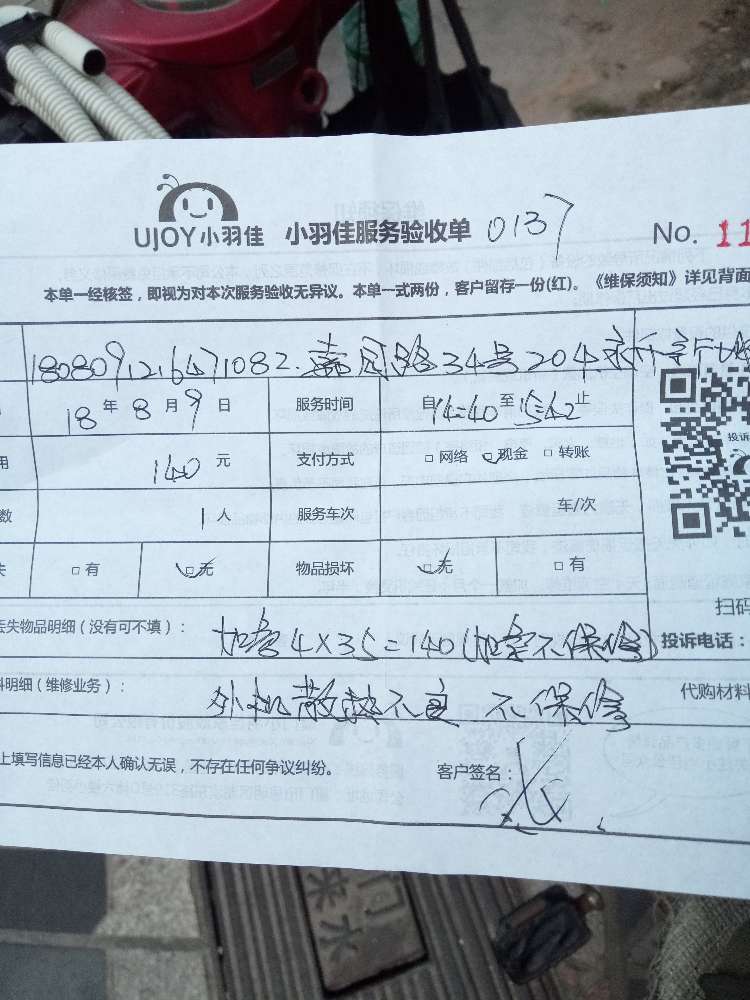 UJOY小羽佳 小羽佳服务验收单 0137 No. 11
本单一经核签，即视为对本次服务验收无异议。本单一式两份，客户留存一份(红)。《维保须知》详见背面
1808091216471082. 嘉园路34号204
18年8月9日 服务时间 自14:40至15:42止
用 140元 支付方式 网络 现金 转账
投诉
数 1人 服务车次 车/次
失 有 无 物品损坏 无 有
扫码
丢失物品明细（没有可不填）： 加氟4×35=140(加氟不保修) 投诉电话：
料明细（维修业务）： 外机散热不良 不保修 代购材料
上填写信息已经本人确认无误，不存在任何争议纠纷。 客户签名：